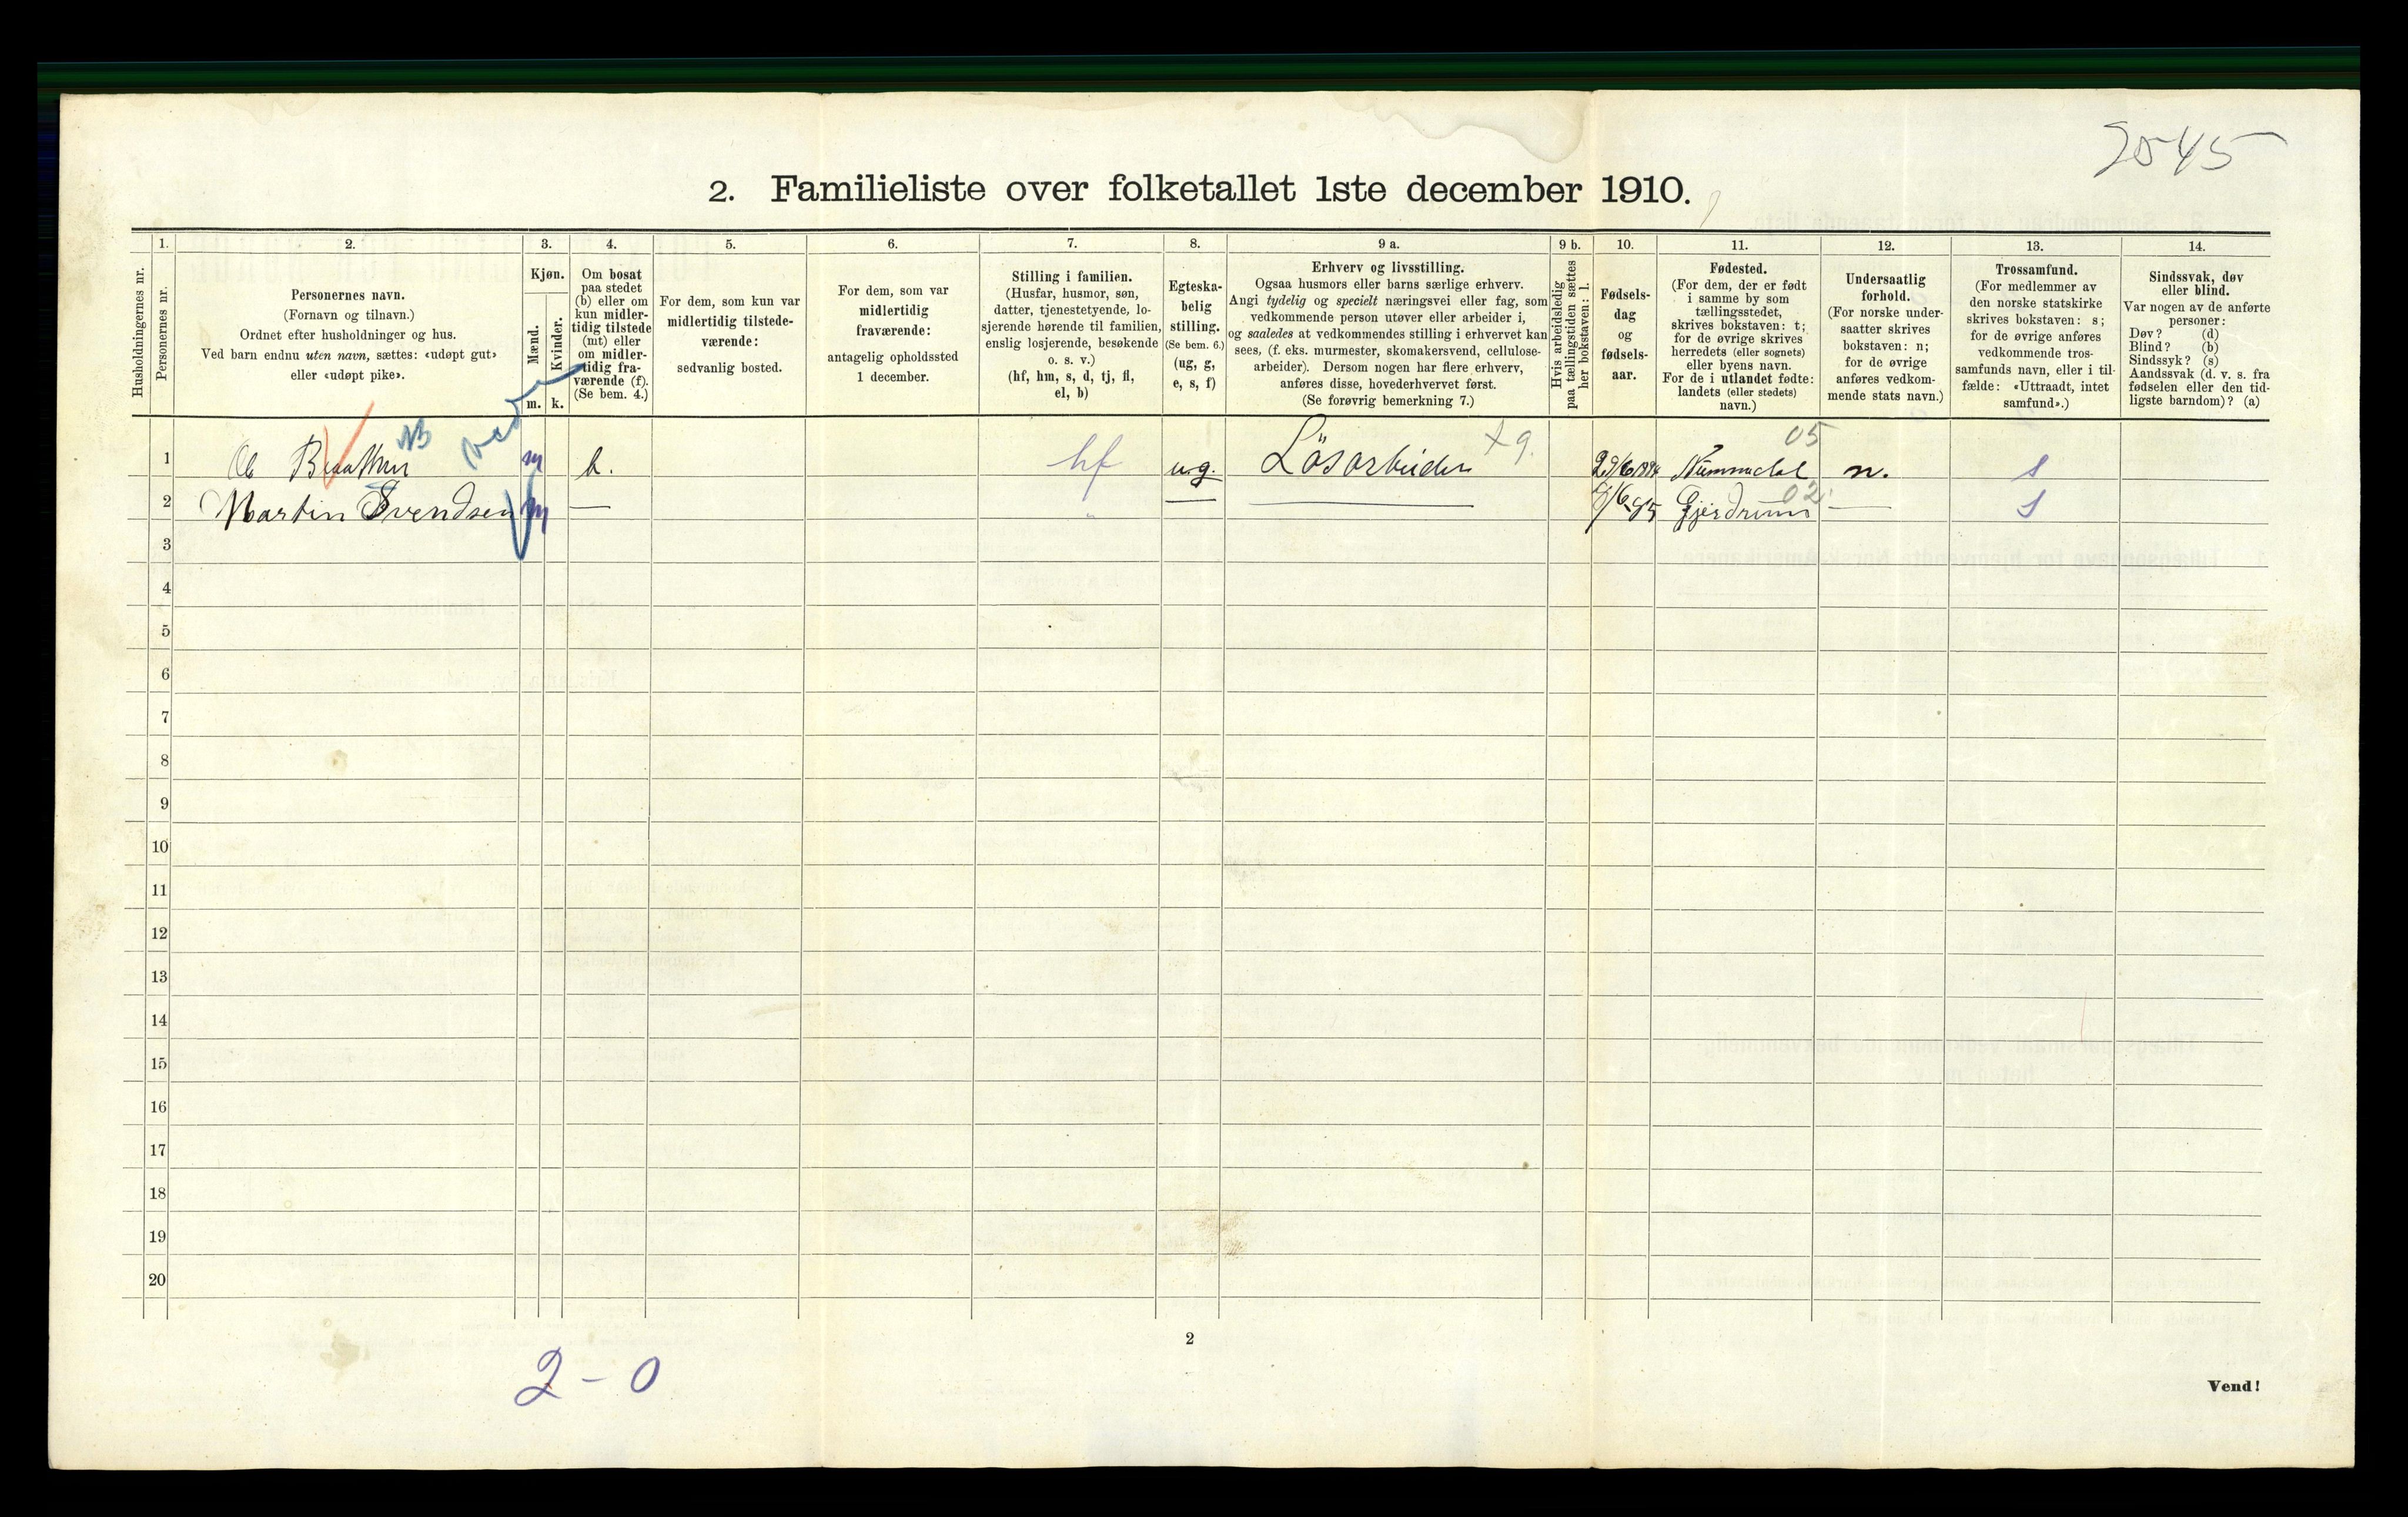 2545
2. Familieliste over folketallet 1ste december 1910.
Husholdningernes nr.
1.
Personernes nr.
2.
Personernes navn.
(Fornavn og tilnavn.)
Ordnet efter husholdninger og hus.
Ved barn endnu uten navn, sættes: «udøpt gut»
eller «udøpt pike».
3.
Kjøn.
Mænd.
Kvinder.
m. k.
4.
Om bosat
paa stedet
(b) eller om
kun midler-
tidig tilstede
(mt) eller
om midler-
tidig fra-
værende (f).
(Se bem. 4.)
5.
For dem, som kun var
midlertidig tilstede-
værende:
sedvanlig bosted.
6.
For dem, som var
midlertidig
fraværende:
antagelig opholdssted
1 december.
7.
Stilling i familien.
(Husfar, husmor, søn,
datter, tjenestetyende, lo-
sjerende hørende til familien,
enslig losjerende, besøkende
o. s. v.)
(hf, hm, s, d, tj, fl,
el, b)
8.
Egteska-
belig
stilling.
(Se bem. 6.)
(ug, g,
e, s, f)
9 a.
Erhverv og livsstilling.
Ogsaa husmors eller barns særlige erhverv.
Angi tydelig og specielt næringsvei eller fag, som
vedkommende person utøver eller arbeider i,
og saaledes at vedkommendes stilling i erhvervet kan
sees, (f. eks. murmester, skomakersvend, cellulose-
arbeider). Dersom nogen har flere erhverv,
anføres disse, hovederhvervet først.
(Se forøvrig bemerkning 7.)
9 b.
Hvis arbeidsledig
paa tællingstiden sættes
her bokstaven: l.
10.
Fødsels-
dag
og
fødsels-
aar.
11.
Fødested.
(For dem, der er født
i samme by som
tællingsstedet,
skrives bokstaven: t;
for de øvrige skrives
herredets (eller sognets)
eller byens navn.
For de i utlandet fødte:
landets (eller stedets)
navn.)
12.
Undersaatlig
forhold.
(For norske under-
saatter skrives
bokstaven: n;
for de øvrige
anføres vedkom-
mende stats navn.)
13.
Trossamfund.
(For medlemmer av
den norske statskirke
skrives bokstaven: s;
for de øvrige anføres
vedkommende tros-
samfunds navn, eller i til-
fælde: «Uttraadt, intet
samfund».)
14.
Sindssvak, døv
eller blind.
Var nogen av de anførte
personer:
Døv? (d)
Blind? (b)
Sindssyk? (s)
Aandssvak (d. v. s. fra
fødselen eller den tid-
ligste barndom)? (a)
1 m b. hf ug. Lösarbeider 05 n. s
2 Martin Svendsen m — — — Gjerdrum 02 — s
3
4
5
6
7
8
9
10
11
12
13
14
15
16
17
18
19
20
2
2 - 0
Vend!